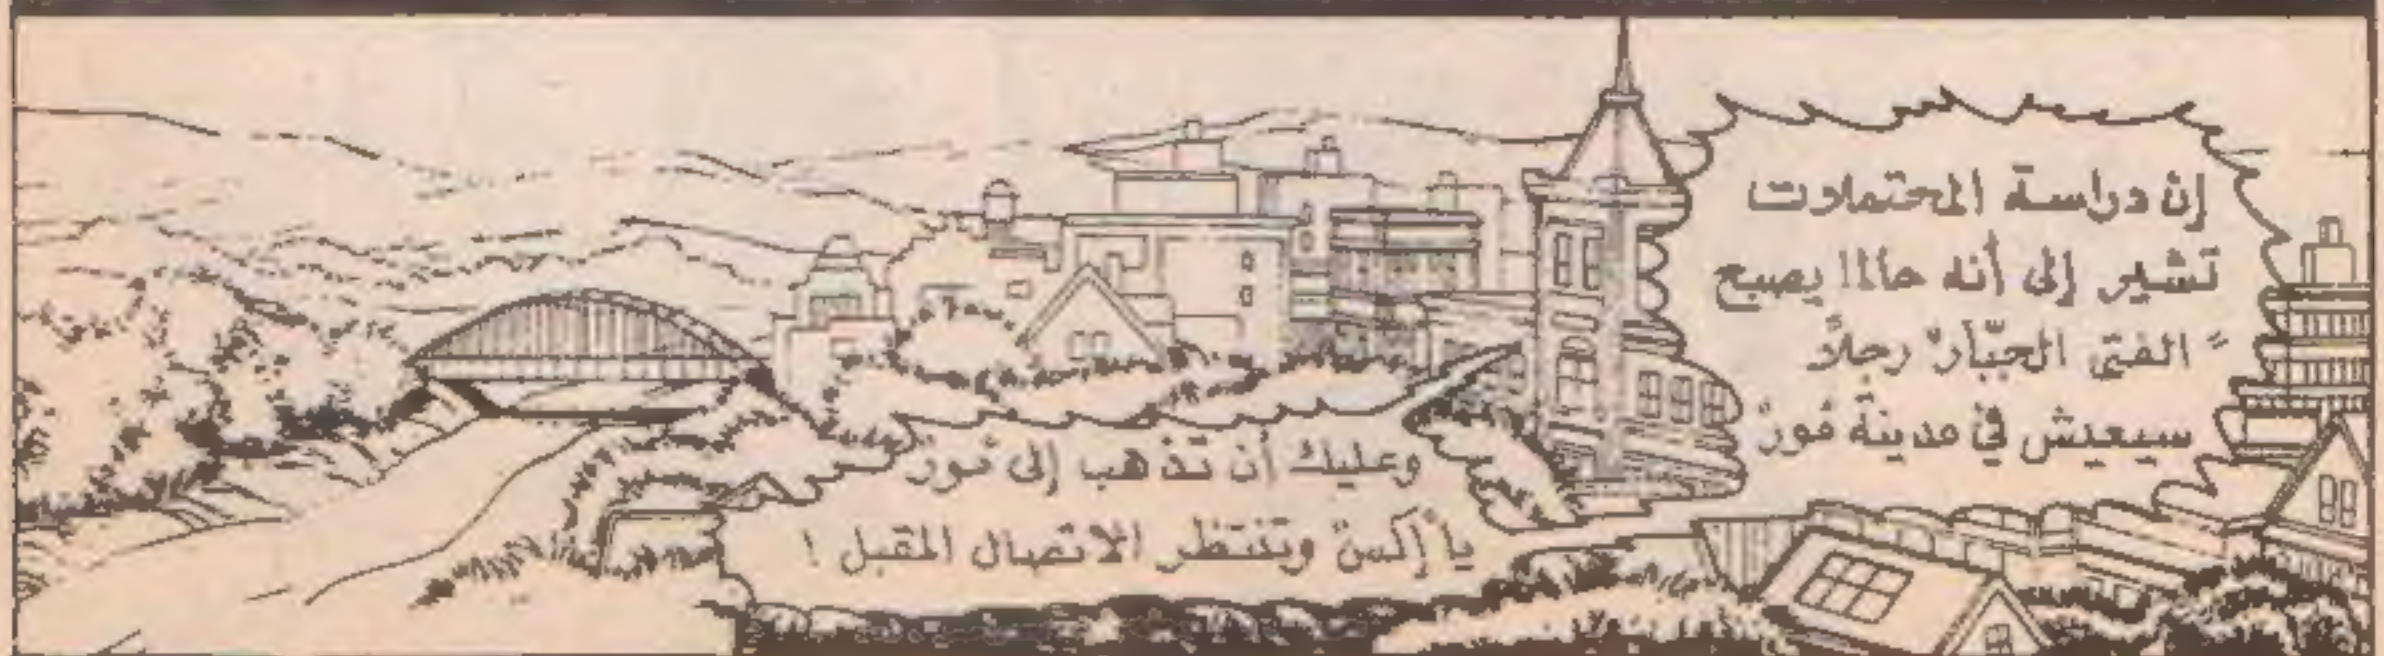 إن دراسة المحتملات
تشير إلى أنه حالما يصبح
"الفتى الجبّار" رجلاً
سيعيش في مدينة فور
وعليك أن تذهب إلى فور
يا إلكس وتنتظر الاتصال المقبل !